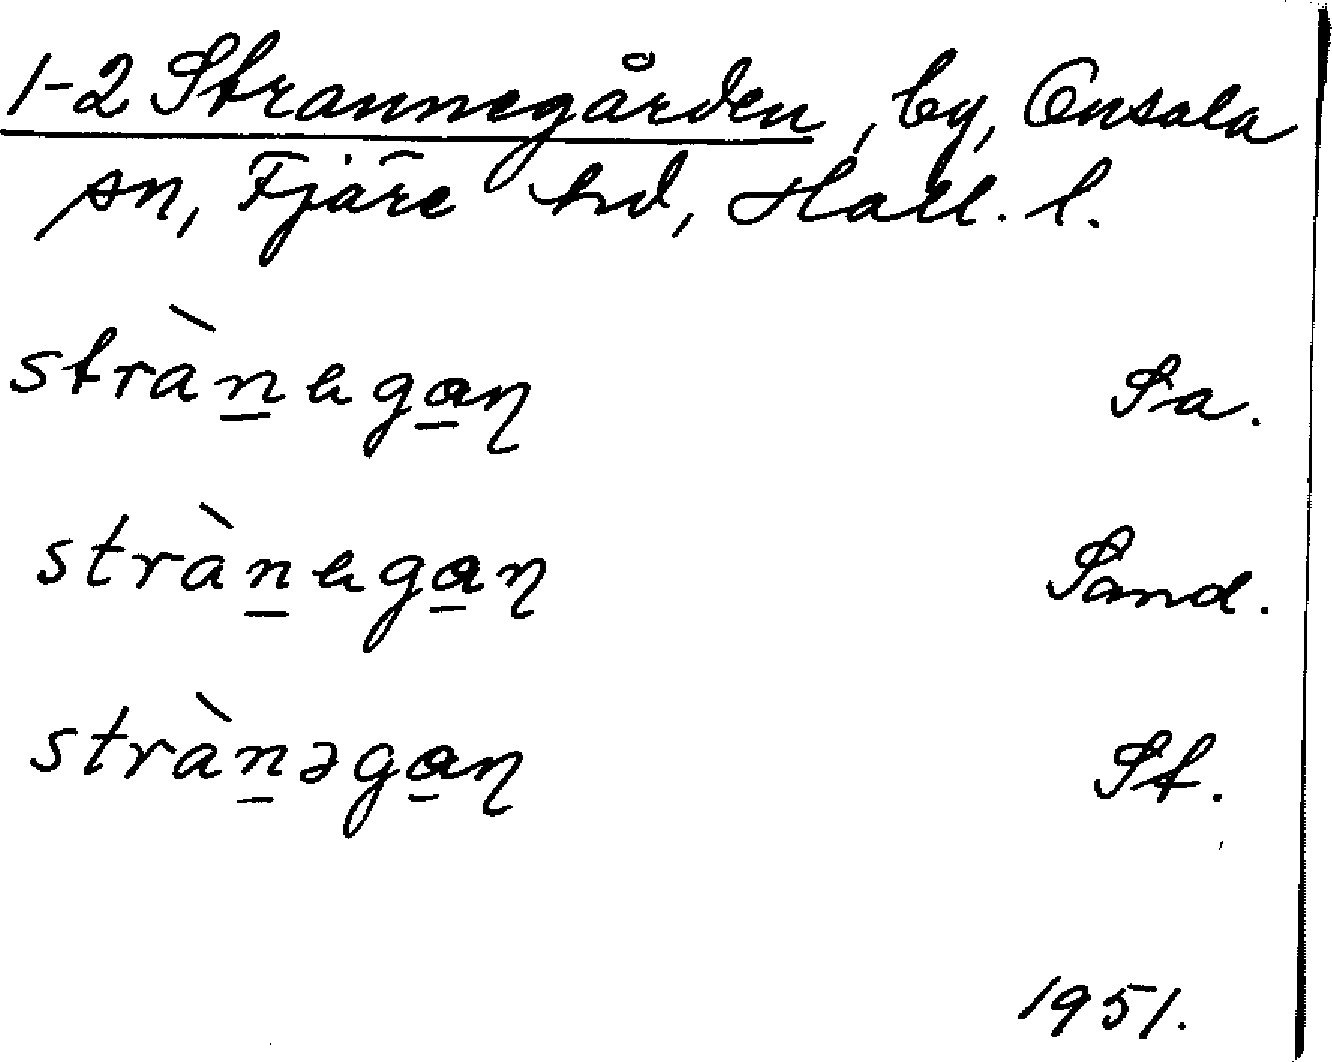 1-2 Strannegården, by, Onsala
sn, Fjäre hd, Hall. l.
stràn̲ega̲ɳ Sa.
stràn̲ega̲ɳ Sand.
stràn̲əga̲ɳ St.
1951.